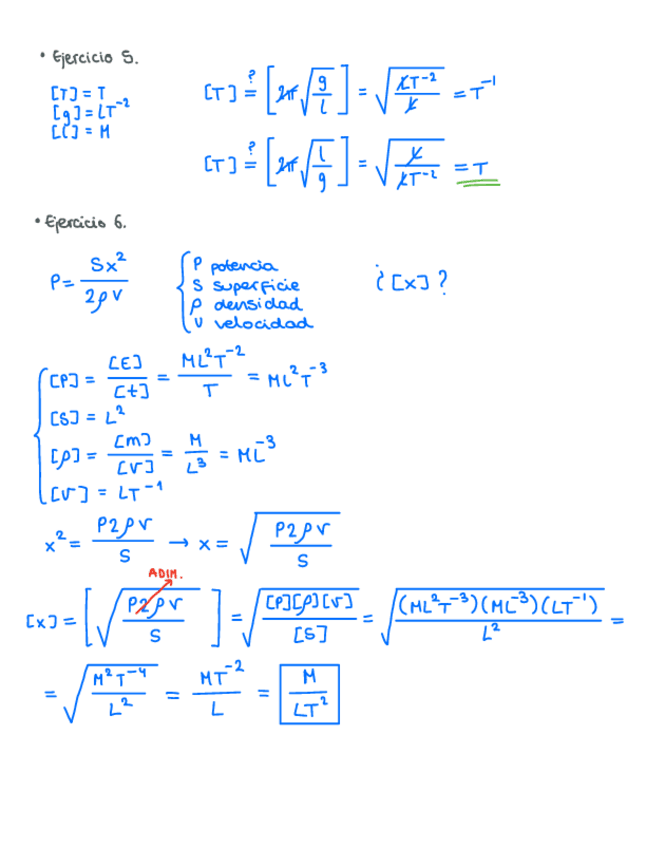 • Ejercicio 5.
[T] = T
[g] = LT⁻²
[l] = M
[T] ≟ [2π√(g/l)] = √(LT⁻²/L) = T⁻¹
[T] ≟ [2π√(l/g)] = √(L/LT⁻²) = T
• Ejercicio 6.
P = Sx²/2ρv
P potencia
S superficie
ρ densidad
v velocidad
¿[x]?
[P] = [E]/[t] = ML²T⁻²/T = ML²T⁻³
[S] = L²
[ρ] = [m]/[V] = M/L³ = ML⁻³
[v] = LT⁻¹
x² = P2ρv/S → x = √(P2ρv/S)
ADIM.
[x] = [√(P2ρv/S)] = √([P][ρ][v]/[S]) = √((ML²T⁻³)(ML⁻³)(LT⁻¹)/L²) =
= √(M²T⁻⁴/L²) = MT⁻²/L = M/LT²